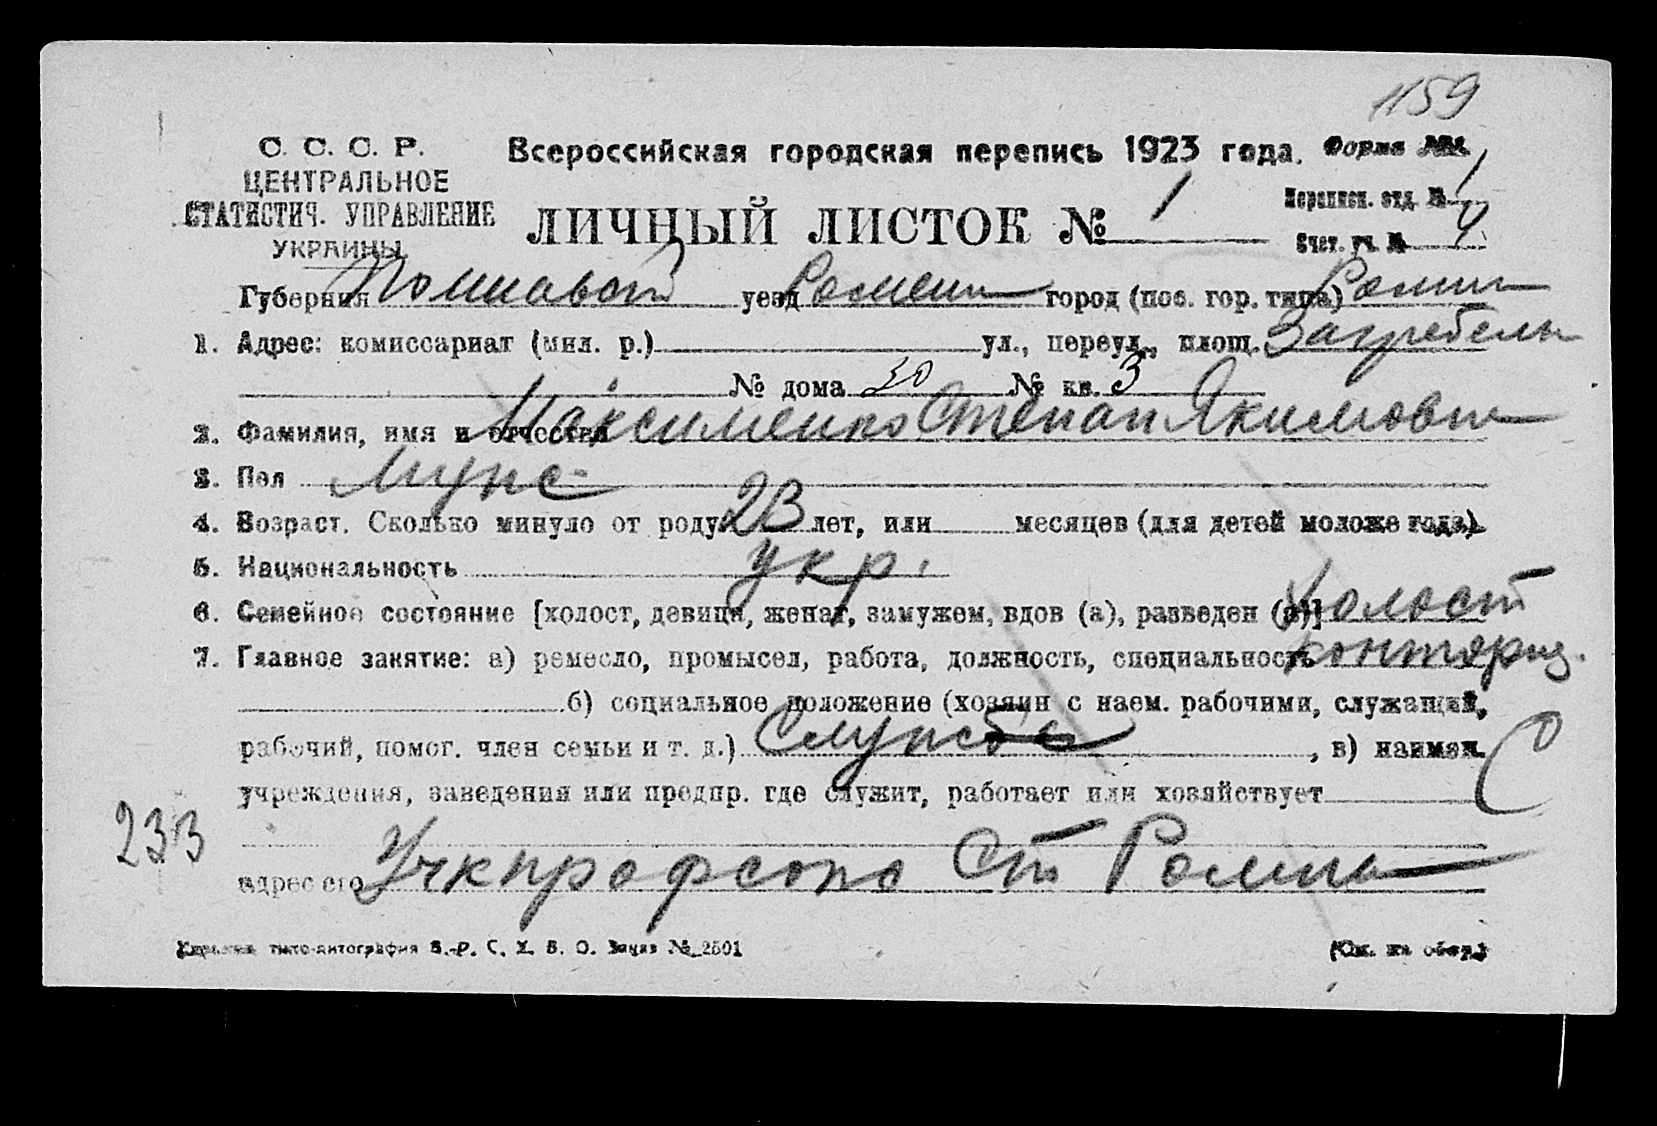 1159
С. С. С. Р.
ЦЕНТРАЛЬНОЕ
СТАТИСТИЧ. УПРАВЛЕНИЕ
УКРАИНЫ
Всероссийская городская перепись 1923 года. Форма №1.
ЛИЧНЫЙ ЛИСТОК № 1
Переписн. отд. № 1
Счет. уч. № 4
Губерния Полтавской уезд Роменск город (пос. гор. типа) Ромны
1. Адрес: комиссариат (мил. р.) ул., переул., площ. Загребель
№ дома 30 № кв. 3
2. Фамилия, имя и отчество Максименко Степан Якимович
3. Пол Мужс
4. Возраст. Сколько минуло от роду 23 лет, или месяцев (для детей моложе года).
5. Национальность укр.
6. Семейное состояние [холост, девица, женат, замужем, вдов (а), разведен (а)] Холост
7. Главное занятие: а) ремесло, промысел, работа, должность, специальность конторщ.
б) социальное положение (хозяин с наем. рабочими, служащий,
рабочий, помог. член семьи и т. д.) Служ , в) наимен.
учреждения, заведения или предпр. где служит, работает или хозяйствует
С
233
адрес его Учкпрофсожа Ст Ромны
типо-литография В.-Р. С. Х. В. О. Заказ № 2501
(См. на обор.)